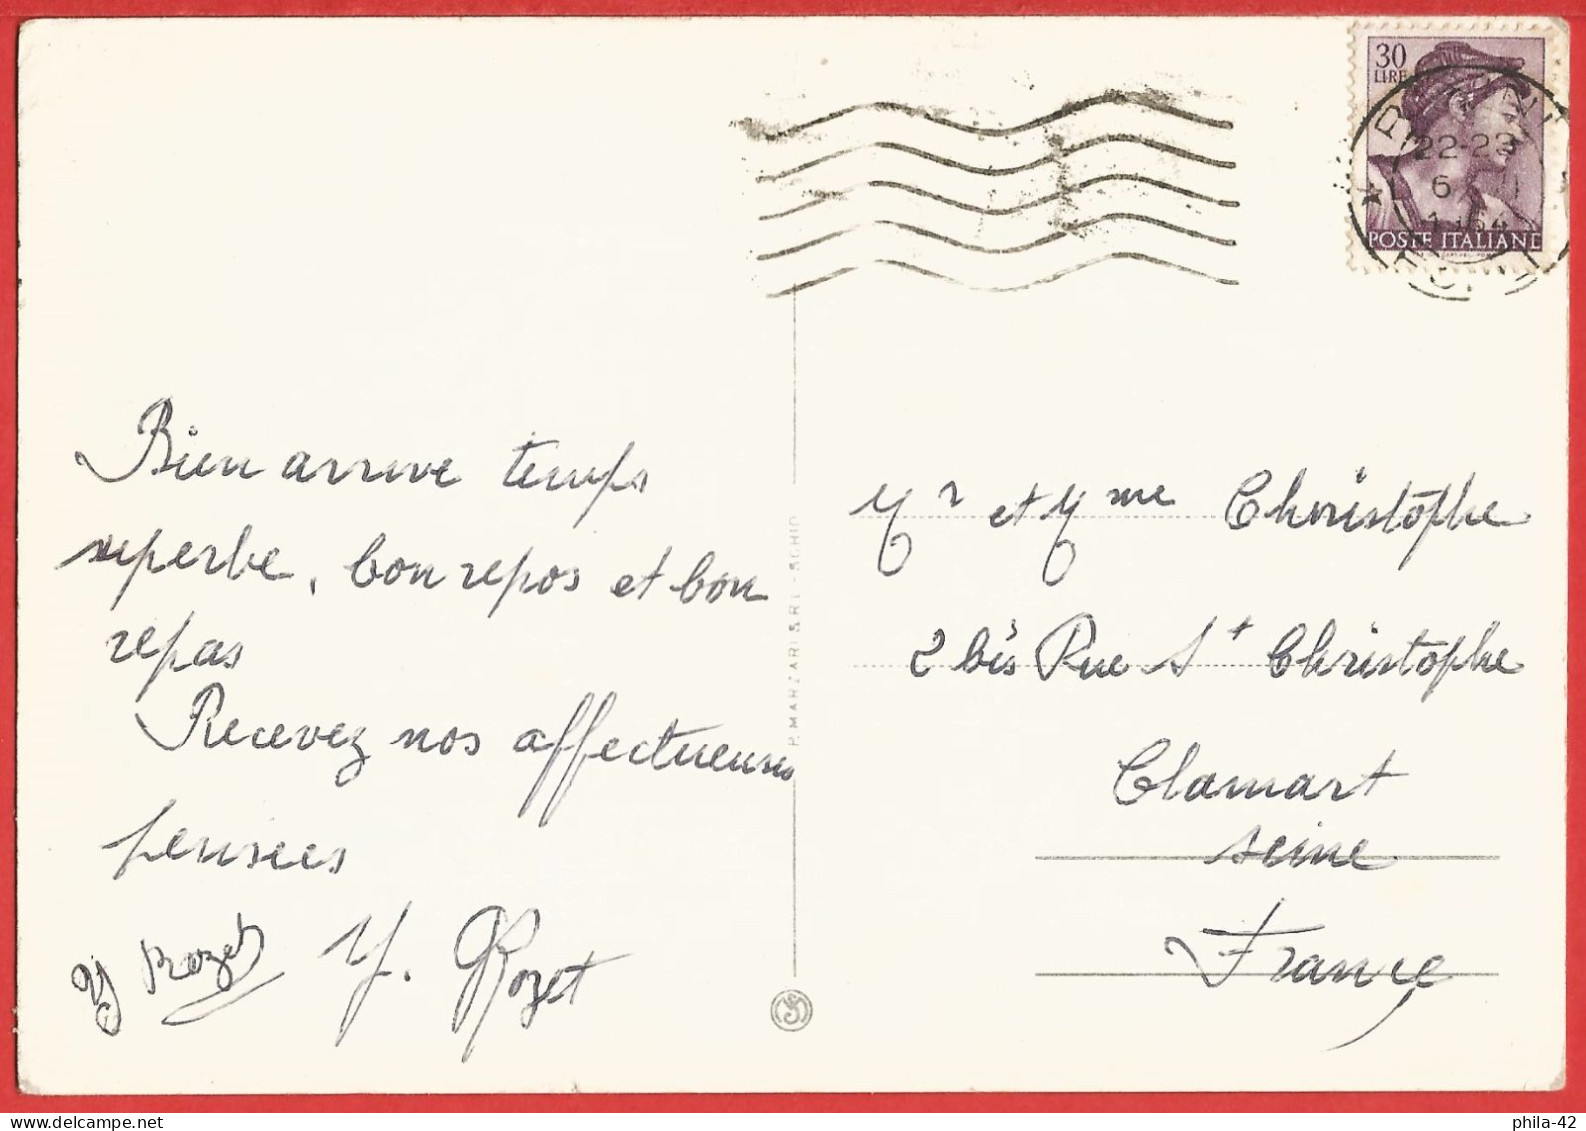 30
LIRE
22-23
6
1964
POSTE ITALIANE
Bien arrive temps
superbe, bon repos et bon
repas
Recevez nos affectueuses
pensees
Y Rozet Y. Rozet
P. MARZARI S.R.L. - SCHIO
Mr et Mme Christophe
2 bis Rue St Christophe
Clamart
seine
France
phila-42